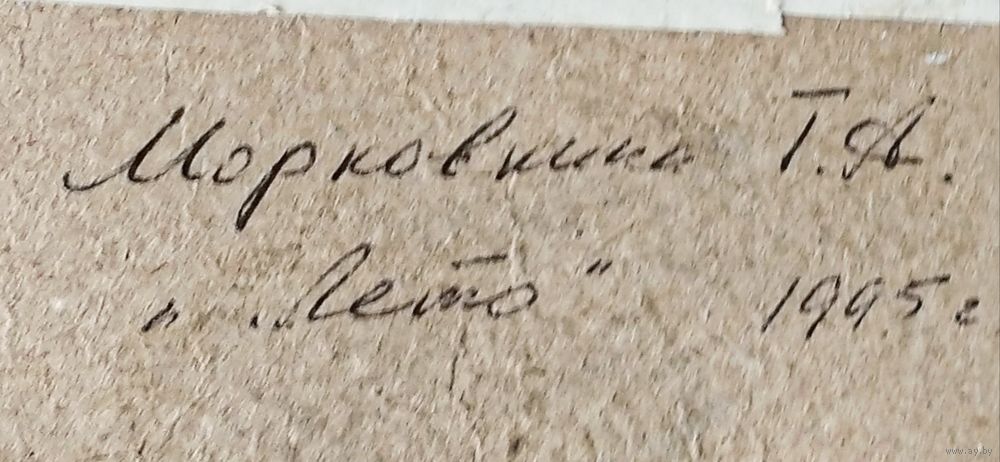 Морковкина Т.А.
„Лето" 1995г
www.ay.by